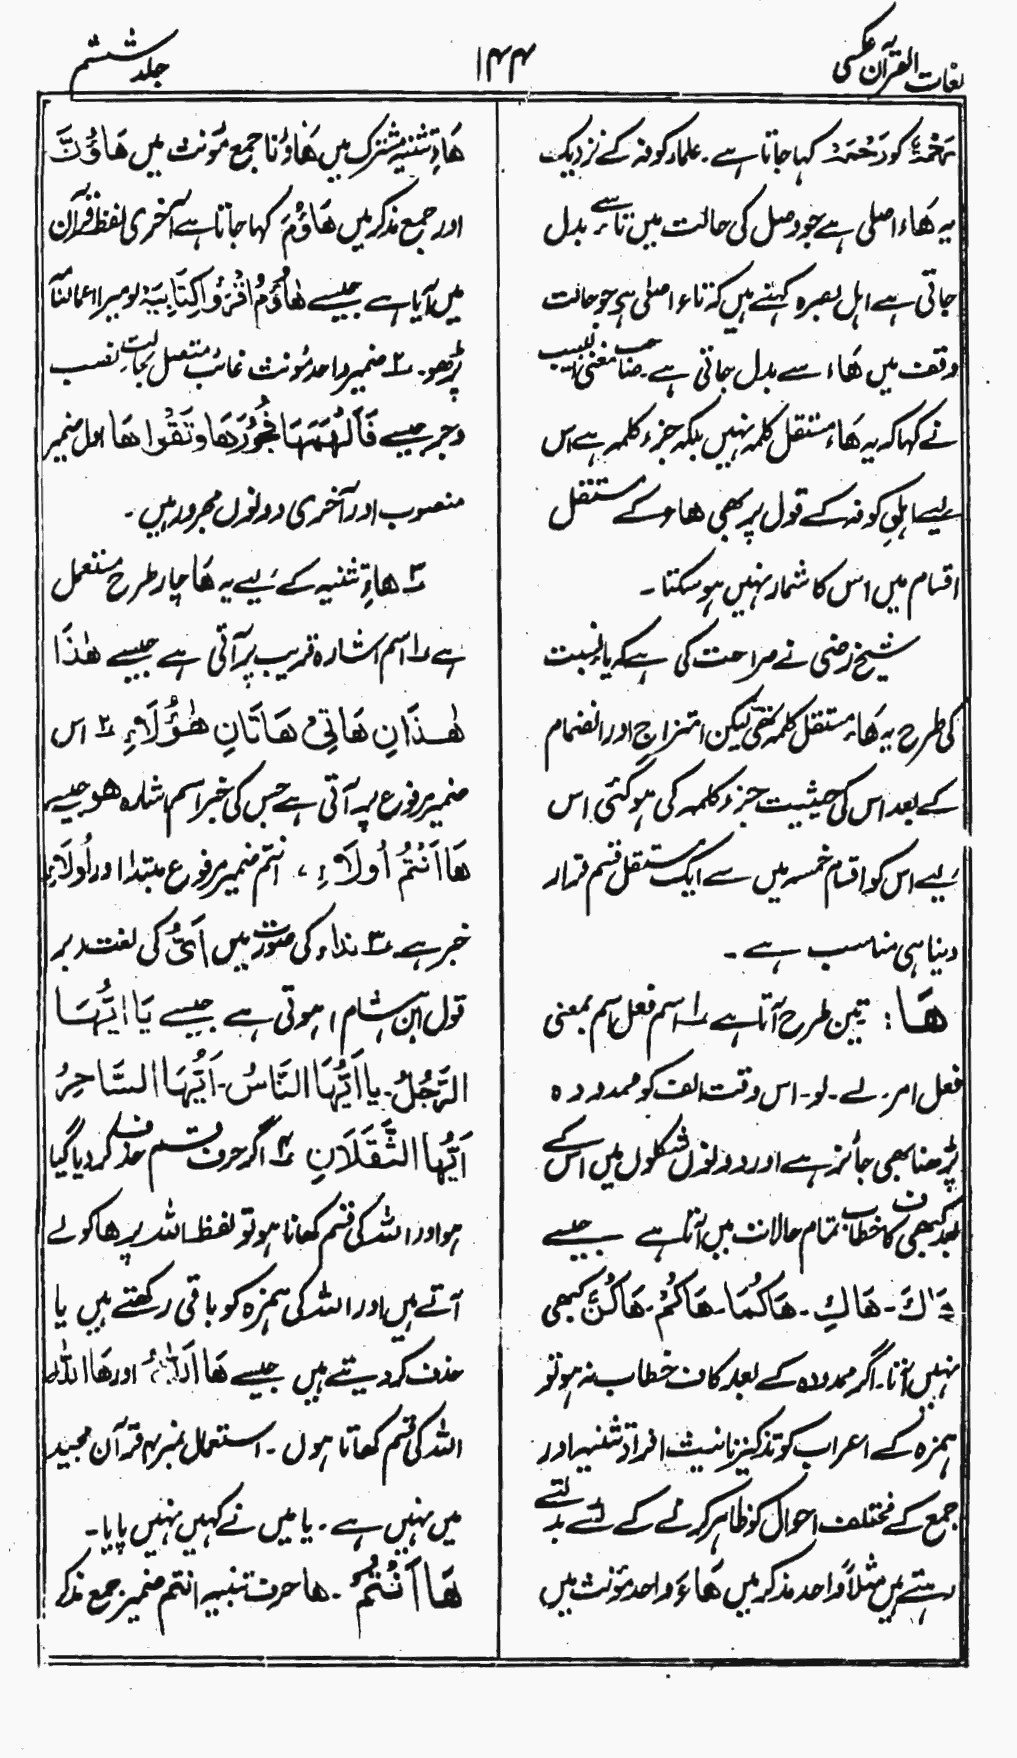 لغات القرآن عکسی
۱۴۴
جلد ششم
رَحْمَۃ کو رَحْمَہ کہا جاتا ہے۔ علماء کوفہ کے نزدیک
یہ ھَاء اصلی ہے جو وصل کی حالت میں تاء سے بدل
جاتی ہے اہل بصرہ کہتے ہیں کہ تاء اصلی ہی جو حالت
وقف میں ھَاء سے بدل جاتی ہے۔ صاحب مغنی اللبیب
نے کہا کہ یہ ھَاء مستقل کلمہ نہیں بلکہ جزء کلمہ ہے اس
لیے اہلِ کوفہ کے قول پر بھی ھاء کے مستقل
اقسام میں اس کا شمار نہیں ہو سکتا۔
شیخ رضی نے صراحت کی ہے کہ یاء نسبت
کی طرح یہ ھَاء مستقل کلمہ تھی لیکن امتزاج اور انضمام
کے بعد اس کی حیثیت جزء کلمہ کی ہو گئی اس
لیے اس کو اقسام خمسہ میں سے ایک مستقل قسم قرار
دینا ہی مناسب ہے۔
ھَا: تین طرح آتا ہے ۱؎ اسم فعل اسم بمعنی
فعل امر۔ لے۔ لو۔ اس وقت الف کو ممدودہ
پڑھنا بھی جائز ہے اور دونوں شکلوں میں اس کے
بعد کبھی کاف خطاب تمام حالات میں آتا ہے جیسے
ھَاكَ۔ ھَاكِ۔ ھَاكُمَا۔ ھَاكُمْ۔ ھَاكُنَّ کبھی
نہیں آتا۔ اگر ممدودہ کے بعد کاف خطاب نہ ہو تو
ہمزہ کے اعراب کو تذکیر تانیث افراد تثنیہ اور
جمع کے مختلف احوال کو ظاہر کرنے کے لئے بدلتے
رہتے ہیں مثلاً واحد مذکر میں ھَاءَ واحد مؤنث میں
ھَاءِ تثنیہ مشترک میں ھَاؤُنا جمع مؤنث میں ھَاؤُنَّ
اور جمع مذکر میں ھَاؤُمُ کہا جاتا ہے آخری لفظ قرآن
میں آیا ہے جیسے ھَاؤُمُ اقْرَءُوا كِتَابِيَهْ لو میرا اعمالنامہ
پڑھو۔ ۲؎ ضمیر واحد مؤنث غائب متصل بحالت نصب
و جر جیسے فَاَلْھَمَھَا فُجُوْرَھَا وَتَقْوٰاھَا اول ضمیر
منصوب اور آخری دونوں مجرور ہیں۔
۳؎ ھاءِ تنبیہ کے لیے یہ ھَا چار طرح مستعمل
ہے ۱؎ اسم اشارہ قریب پر آتی ہے جیسے ھٰذَا
ھٰذَانِ ھَاتِیْ ھَاتَانِ ھٰؤُلَاءِ ۲؎ اس
ضمیر مرفوع پر آتی ہے جس کی خبر اسم اشارہ ھو جیسے
ھَااَنْتُمْ اُولَاءِ، انتم ضمیر مرفوع مبتدا اور اُولَاءِ
خبر ہے ۳؎ نداء کی صورت میں اَیُّ کی لغت بر
قول ابن ہشام ہوتی ہے جیسے یَا اَیُّھَا
الرَّجُلُ۔ یا اَیُّھَا النَّاسُ۔ اَیُّھَا السَّاحِرُ
اَیُّھَا الثَّقَلَانِ ۴؎ اگر حرف قسم حذف کر دیا گیا
ہو اور اللہ کی قسم کھانا ہو تو لفظ اللہ پر ھا کو لے
آتے ہیں اور اللہ کی ہمزہ کو باقی رکھتے ہیں یا
حذف کر دیتے ہیں جیسے ھَا اَللّٰہُ اور ھَا اللّٰہ
اللہ کی قسم کھاتا ہوں۔ استعمال نمبر ۴ قرآن مجید
میں نہیں ہے۔ یا میں نے کہیں نہیں پایا۔
ھَااَنْتُمْ۔ ھا حرف تنبیہ انتم ضمیر جمع مذکر